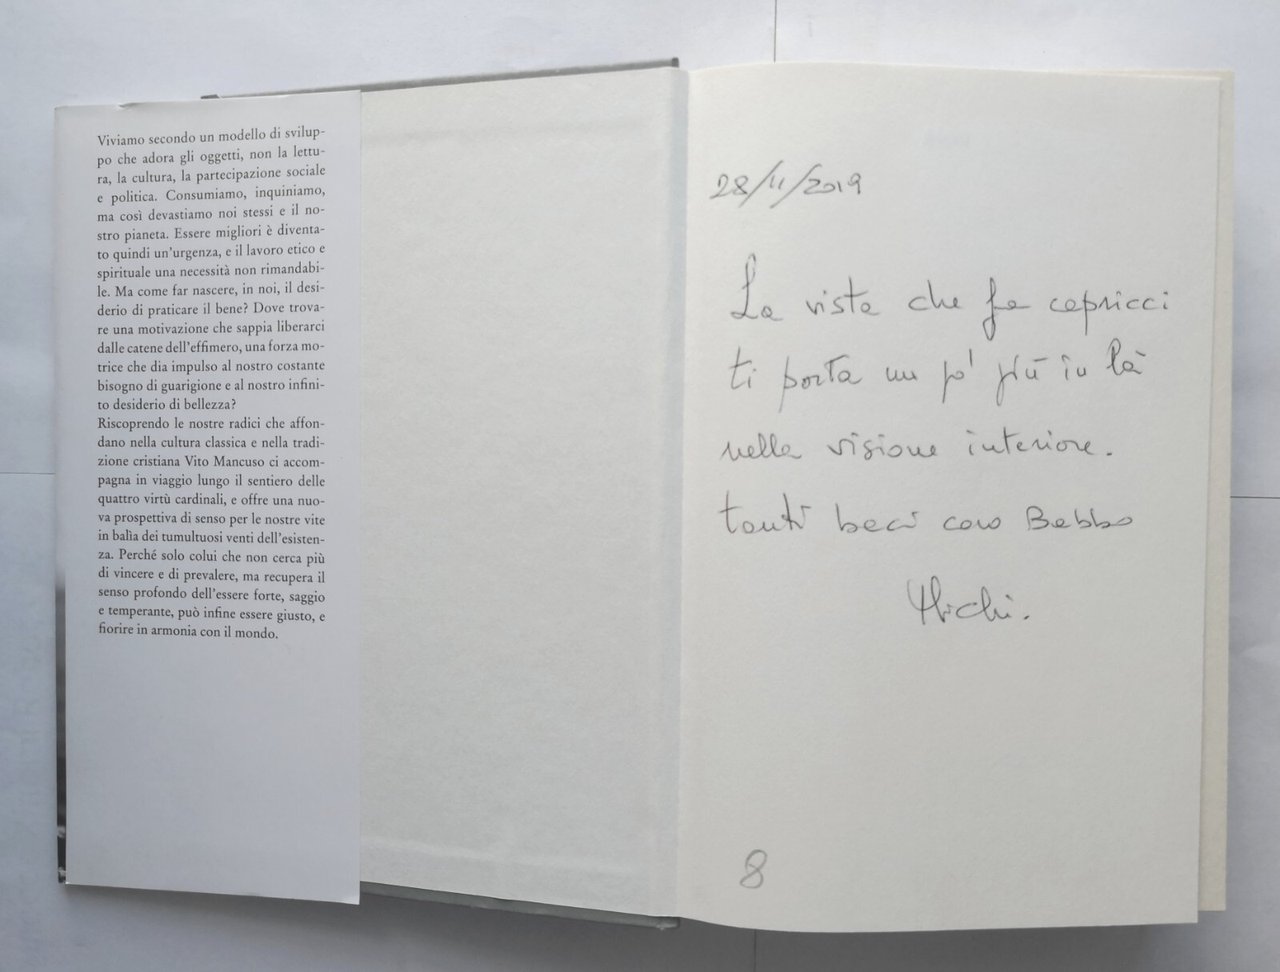 Viviamo secondo un modello di svilup-
po che adora gli oggetti, non la lettu-
ra, la cultura, la partecipazione sociale
e politica. Consumiamo, inquiniamo,
ma così devastiamo noi stessi e il no-
stro pianeta. Essere migliori è diventa-
to quindi un'urgenza, e il lavoro etico e
spirituale una necessità non rimandabi-
le. Ma come far nascere, in noi, il desi-
derio di praticare il bene? Dove trova-
re una motivazione che sappia liberarci
dalle catene dell'effimero, una forza mo-
trice che dia impulso al nostro costante
bisogno di guarigione e al nostro infini-
to desiderio di bellezza?
Riscoprendo le nostre radici che affon-
dano nella cultura classica e nella tradi-
zione cristiana Vito Mancuso ci accom-
pagna in viaggio lungo il sentiero delle
quattro virtù cardinali, e offre una nuo-
va prospettiva di senso per le nostre vite
in balìa dei tumultuosi venti dell'esisten-
za. Perché solo colui che non cerca più
di vincere e di prevalere, ma recupera il
senso profondo dell'essere forte, saggio
e temperante, può infine essere giusto, e
fiorire in armonia con il mondo.
28/11/2019
La vista che fa capricci
ti porta un po' più in là
nella visione interiore.
tanti baci caro Babbo
Michi.
8